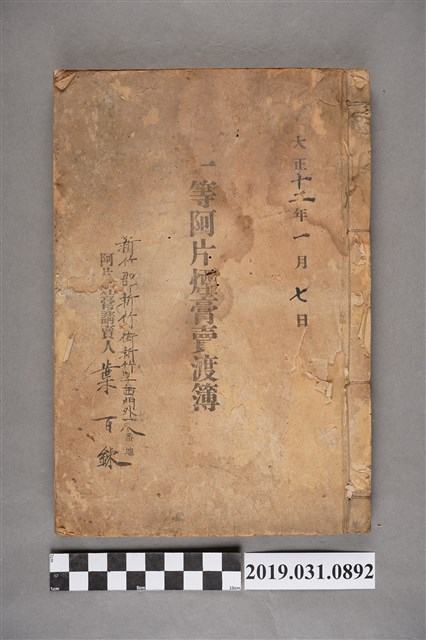 大正十二年一月七日
一等阿片煙膏賣渡簿
新竹郡新竹街新竹字西門外一八番地
阿片煙膏請賣人 葉百鍊
2019.031.0892